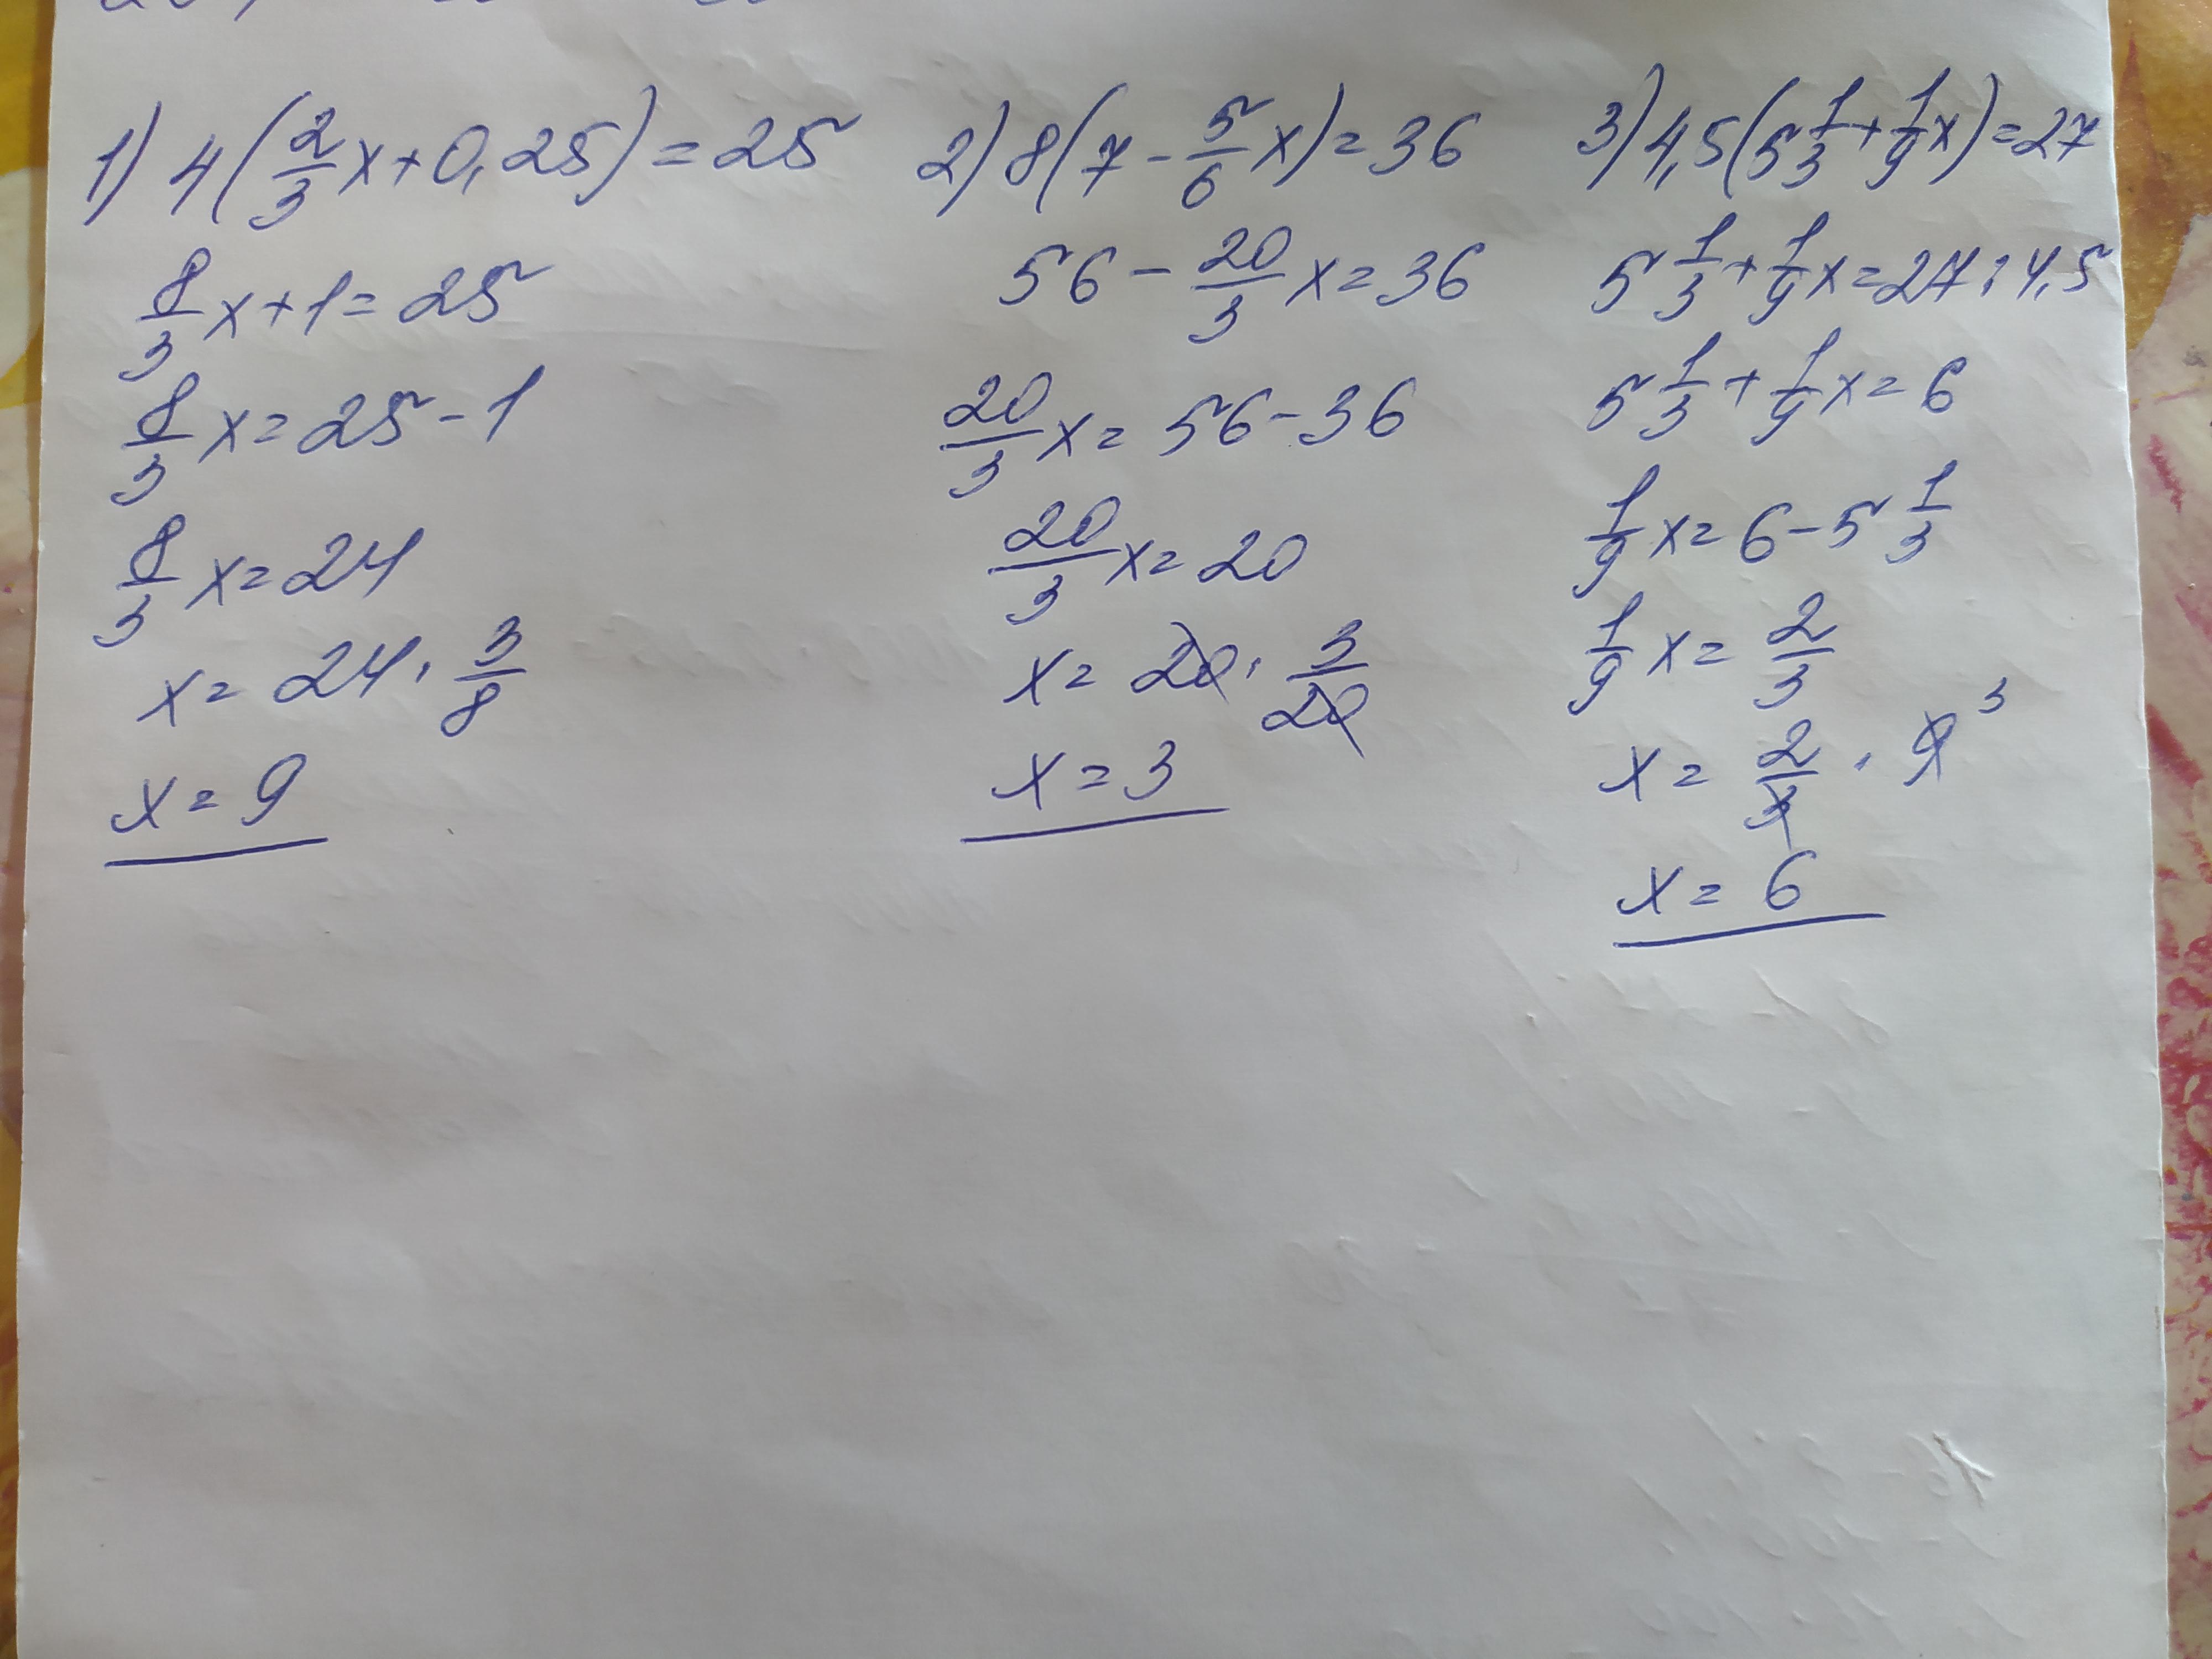 1) 4(2/3x+0,25)=25
8/3x+1=25
8/3x=25-1
8/3x=24
x=24·3/8
x=9
2) 8(7-5/6x)=36
56-20/3x=36
20/3x=56-36
20/3x=20
x=20·3/20
x=3
3) 4,5(5 1/3+1/9x)=27
5 1/3+1/9x=27:4,5
5 1/3+1/9x=6
1/9x=6-5 1/3
1/9x=2/3
x=2/3·9 3
x=6